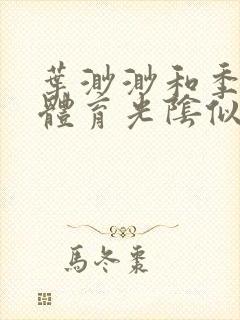 葉渺渺和季
體育光陰似
馬冬棗